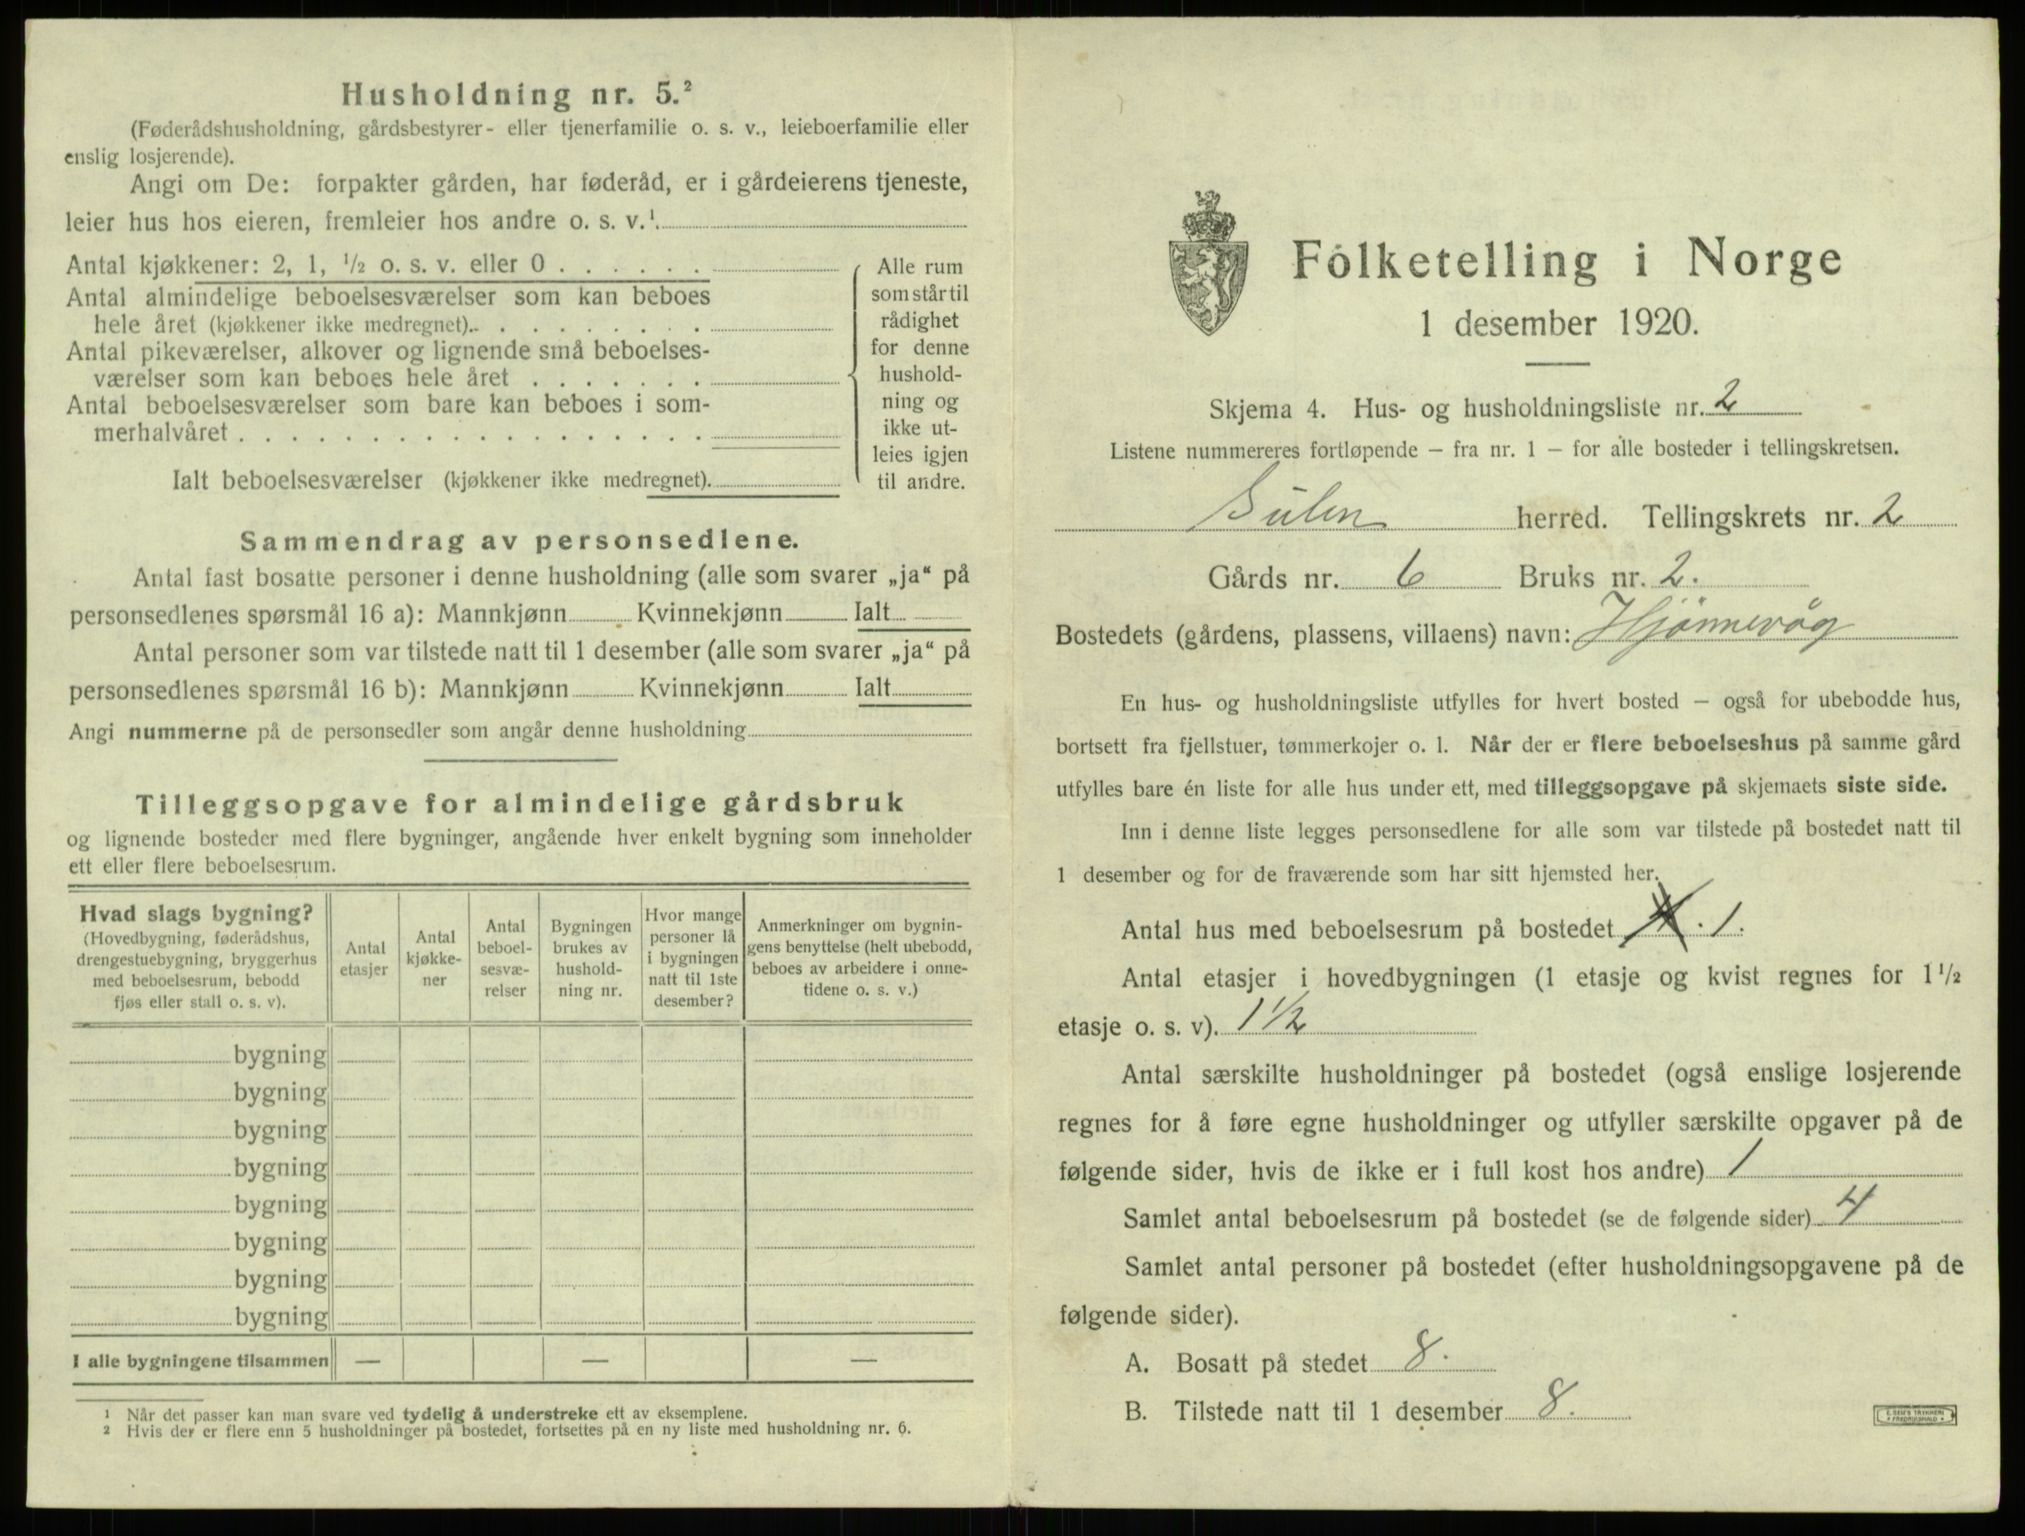 Husholdning nr. 5.²
(Føderådshusholdning, gårdsbestyrer- eller tjenerfamilie o. s. v., leieboerfamilie eller
enslig losjerende).
Angi om De: forpakter gården, har føderåd, er i gårdeierens tjeneste,
leier hus hos eieren, fremleier hos andre o. s. v.¹
Antal kjøkkener: 2, 1, ½ o. s. v. eller 0
Antal almindelige beboelsesværelser som kan beboes
hele året (kjøkkener ikke medregnet)
Antal pikeværelser, alkover og lignende små beboelses-
værelser som kan beboes hele året
Antal beboelsesværelser som bare kan beboes i som-
merhalvåret
Ialt beboelsesværelser (kjøkkener ikke medregnet).
Alle rum
som står til
rådighet
for denne
hushold-
ning og
ikke ut-
leies igjen
til andre.
Sammendrag av personsedlene.
Antal fast bosatte personer i denne husholdning (alle som svarer „ja“ på
personsedlenes spørsmål 16 a): Mannkjønn Kvinnekjønn Ialt
Antal personer som var tilstede natt til 1 desember (alle som svarer „ja“ på
personsedlenes spørsmål 16 b): Mannkjønn Kvinnekjønn Ialt
Angi nummerne på de personsedler som angår denne husholdning
Tilleggsopgave for almindelige gårdsbruk
og lignende bosteder med flere bygninger, angående hver enkelt bygning som inneholder
ett eller flere beboelsesrum.
Hvad slags bygning?
(Hovedbygning, føderådshus,
drengestuebygning, bryggerhus
med beboelsesrum, bebodd
fjøs eller stall o. s. v).
Antal
etasjer
Antal
kjøkke-
ner
Antal
beboel-
sesvæ-
relser
Bygningen
brukes av
hushold-
ning nr.
Hvor mange
personer lå
i bygningen
natt til 1ste
desember?
Anmerkninger om bygnin-
gens benyttelse (helt ubebodd,
beboes av arbeidere i onne-
tidene o. s. v.)
bygning
bygning
bygning
bygning
bygning
bygning
bygning
bygning
I alle bygningene tilsammen — — —
¹ Når det passer kan man svare ved tydelig å understreke ett av eksemplene.
² Hvis der er flere enn 5 husholdninger på bostedet, fortsettes på en ny liste med husholdning nr. 6.
Folketelling i Norge
1 desember 1920.
Skjema 4. Hus- og husholdningsliste nr. 2
Listene nummereres fortløpende – fra nr. 1 – for alle bosteder i tellingskretsen.
Gulen herred. Tellingskrets nr. 2
Gårds nr. 6 Bruks nr. 2.
Bostedets (gårdens, plassens, villaens) navn: Hjønnevåg
En hus- og husholdningsliste utfylles for hvert bosted – også for ubebodde hus,
bortsett fra fjellstuer, tømmerkojer o. l. Når der er flere beboelseshus på samme gård
utfylles bare én liste for alle hus under ett, med tilleggsopgave på skjemaets siste side.
Inn i denne liste legges personsedlene for alle som var tilstede på bostedet natt til
1 desember og for de fraværende som har sitt hjemsted her.
Antal hus med beboelsesrum på bostedet 1.
Antal etasjer i hovedbygningen (1 etasje og kvist regnes for 1½
etasje o. s. v). 1½
Antal særskilte husholdninger på bostedet (også enslige losjerende
regnes for å føre egne husholdninger og utfyller særskilte opgaver på de
følgende sider, hvis de ikke er i full kost hos andre) 1
Samlet antal beboelsesrum på bostedet (se de følgende sider) 4
Samlet antal personer på bostedet (efter husholdningsopgavene på de
følgende sider).
A. Bosatt på stedet 8.
B. Tilstede natt til 1 desember 8.
E. SEM'S TRYKKERI
FREDRIKSHALD